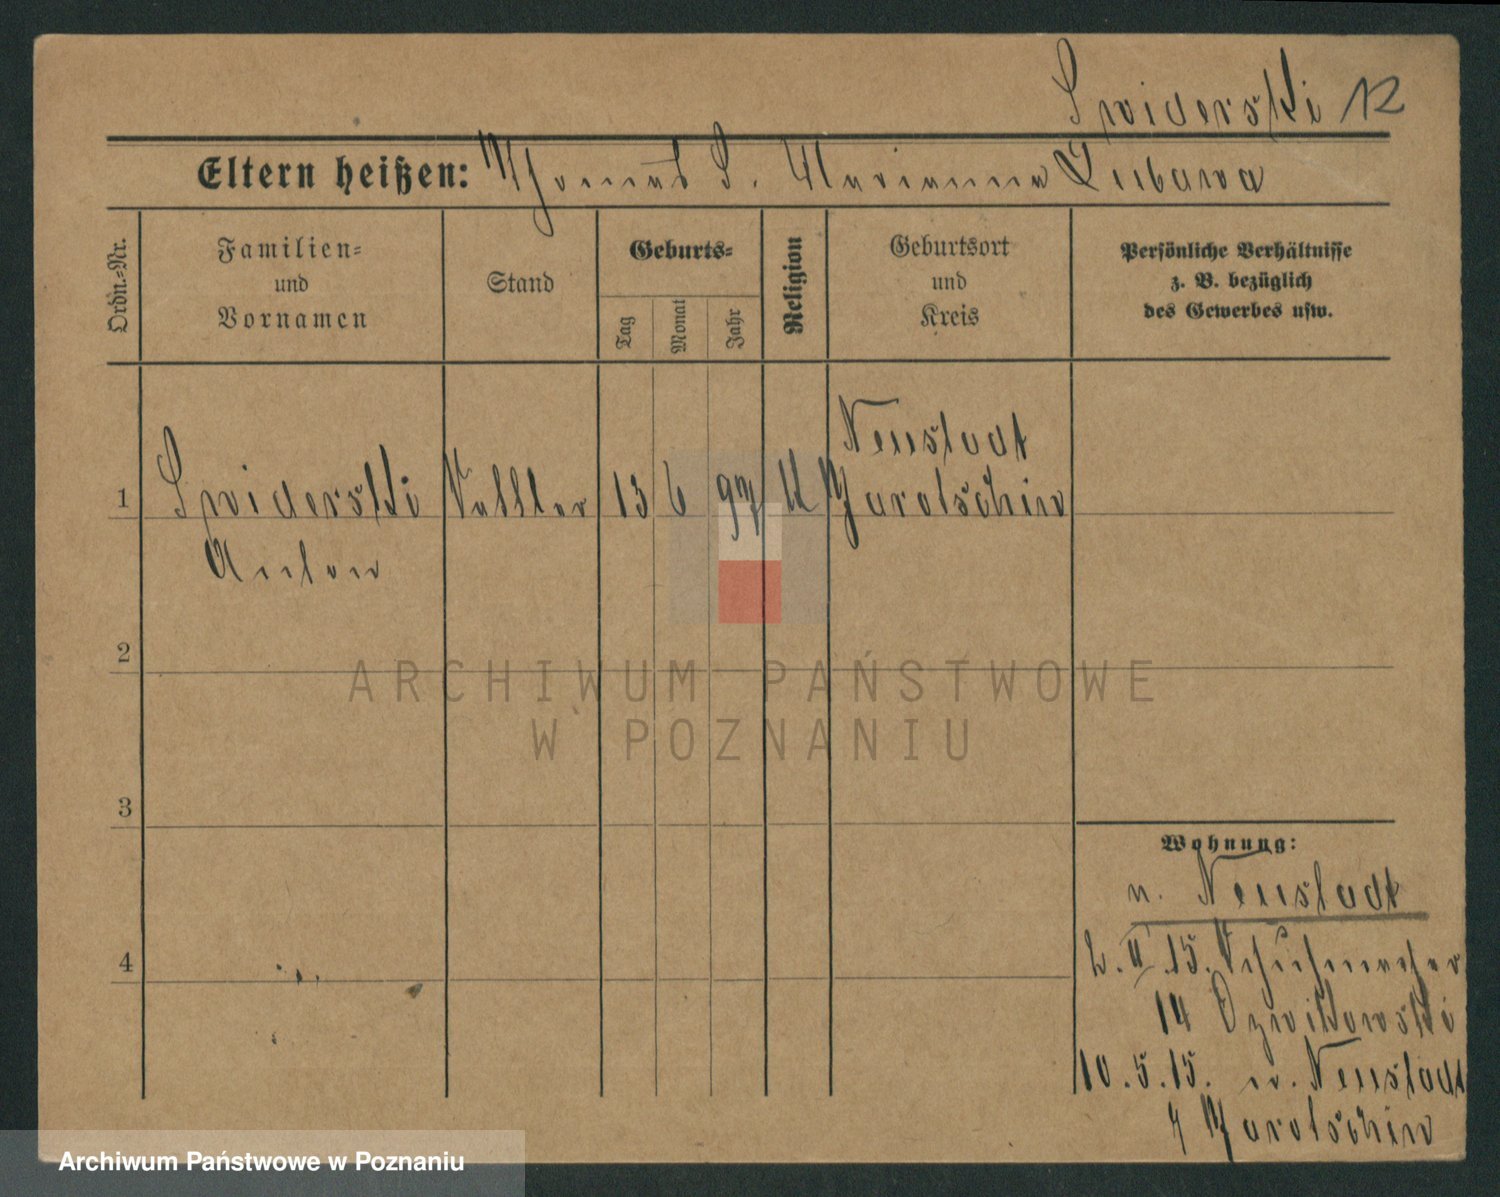 Swiderski 12
Eltern heißen: Thomas S. Marianna Lubawa
Ordn.-Nr.
Familien-
und
Vornamen
Stand
Geburts-
Tag
Monat
Jahr
Religion
Geburtsort
und
Kreis
Persönliche Verhältnisse
z. B. bezüglich
des Gewerbes usw.
Neustadt
1 Swiderski Sattler 13 6 97 k Jarotschin
Anton
2
3
4
Wohnung:
n. Neustadt
2. II. 15. Schuhmacher
14
10. 5. 15. n. Neustadt
Jarotschin
ARCHIWUM PAŃSTWOWE
W POZNANIU
Archiwum Państwowe w Poznaniu